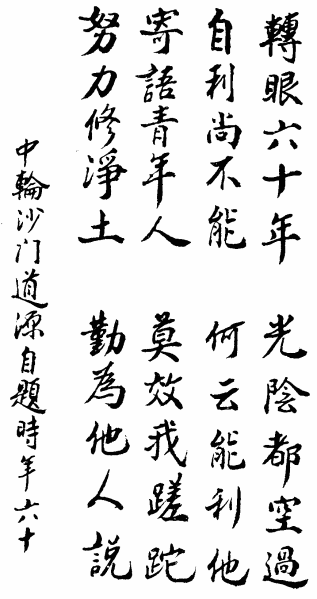 轉眼六十年 光陰都空過
自利尚不能 何云能利他
寄語青年人 莫效我蹉跎
努力修淨土 勤為他人說
中輪沙门道源自題時年六十